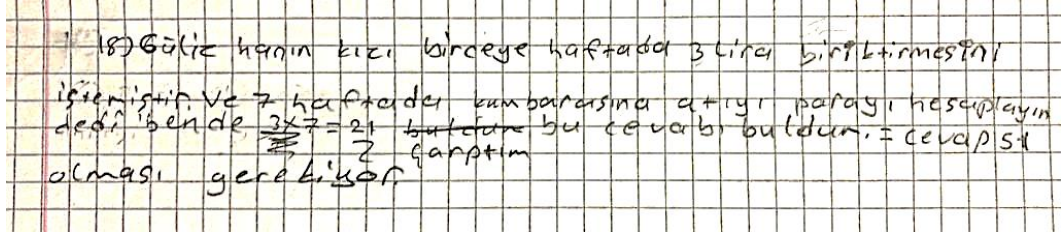 18) Gülic hanın kızı birceye haftada 3 lira biriktirmesini
istemiştir. Ve 7 haftada kumbarasına atıyı parayı hesaplayın
dedi bende 3x7=21 buldum bu cevabı buldum. = cevap 51
çarptım
olması gerekiyor.